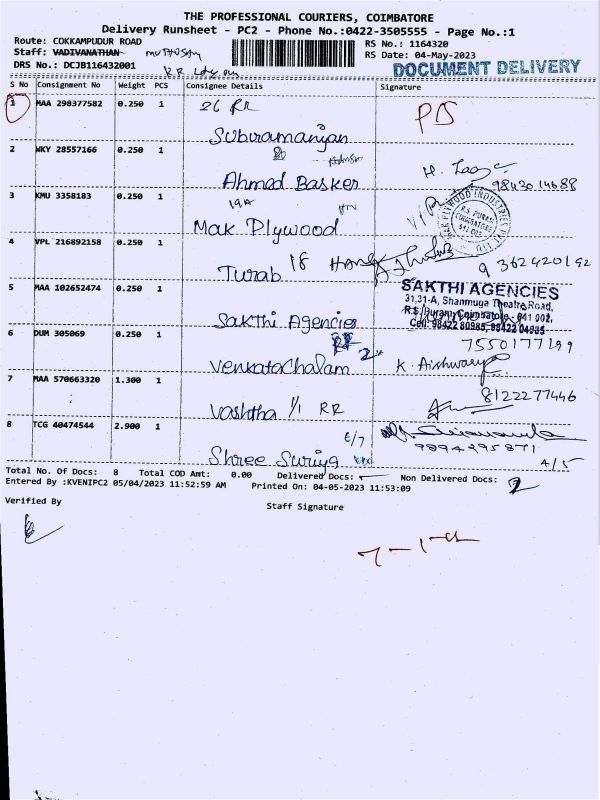 THE PROFESSIONAL COURIERS, COIMBATORE
Delivery Runsheet - PC2 - Phone No.:0422-3505555 - Page No.:1
Route: COKKAMPUDUR ROAD
RS No.: 1164320
Staff: VADIVANATHAN
RS Date: 04-May-2023
DRS No.: DCJB116432001
DOCUMENT DELIVERY
S No Consignment No Weight PCS Consignee Details Signature
1 MAA 298377582 0.250 1 26 RR
Subiramaniyan
2 WKY 28557166 0.250 1
Ahmed Basker
98430 14688
3 KMU 3358183 0.250 1
Mak Plywood
MAK PLYWOOD INDUSTRIES PVT LTD
R.S. PURAM
COIMBATORE
641 002
4 VPL 216892158 0.250 1
Turab 18
9362420192
5 MAA 102652474 0.250 1
Sakthi Agencies
SAKTHI AGENCIES
31,31-A, Shanmuga Theatre Road,
R.S. Puram, Coimbatore - 641 002.
Cell: 98422 80985, 98422 04985
7550177199
6 DUM 305069 0.250 1
Venkatachalam
K. Aishwarya
7 MAA 570663320 1.300 1
Vashtha 1/1 RR
8122277446
8 TCG 40474544 2.900 1
6/7
Shree Suriya
9894495871
4/5
Total No. Of Docs: 8 Total COD Amt: 0.00 Delivered Docs: Non Delivered Docs:
Entered By :KVENIPC2 05/04/2023 11:52:59 AM Printed On: 04-05-2023 11:53:09
Verified By
Staff Signature